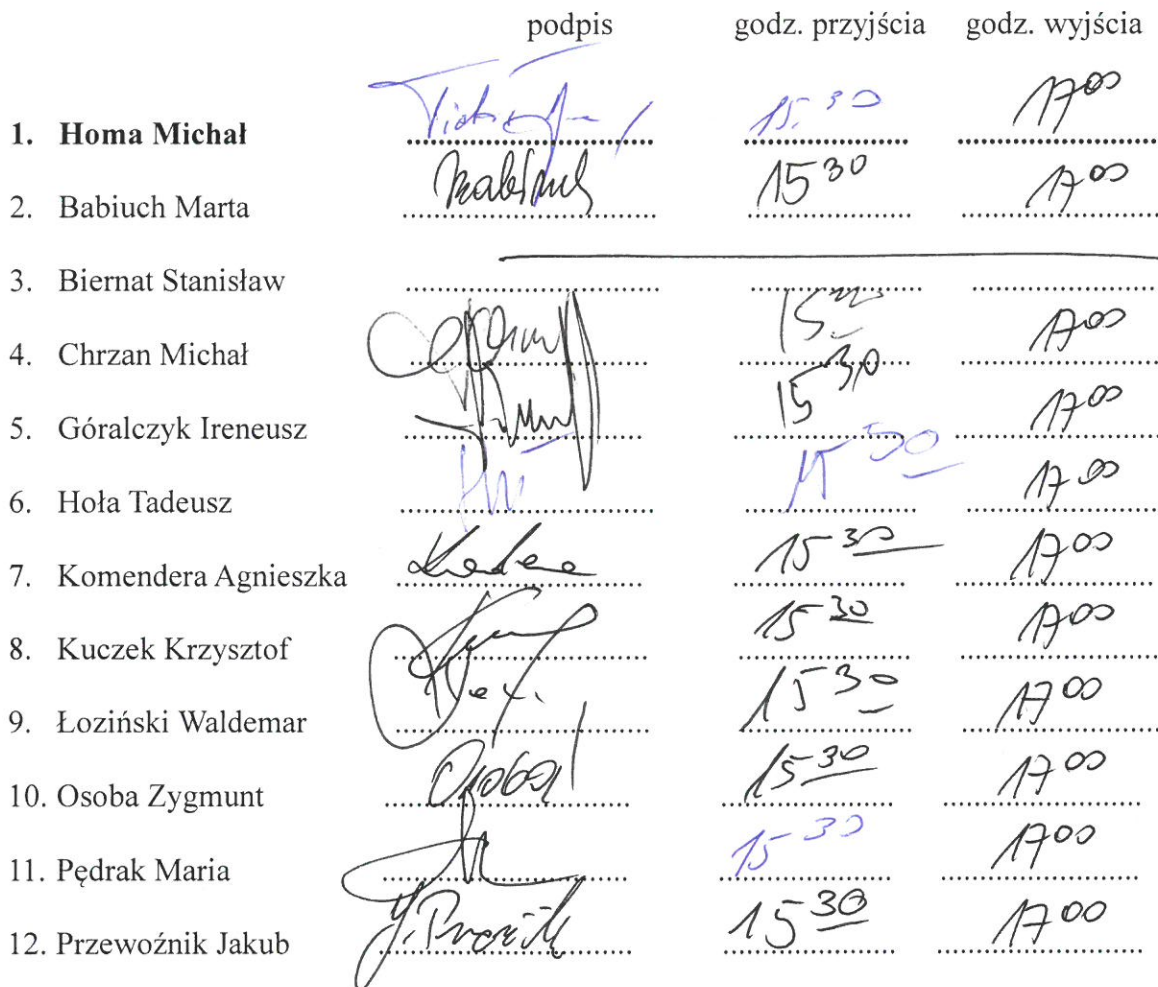 podpis godz. przyjścia godz. wyjścia
1. Homa Michał 15.30 17 00
2. Babiuch Marta 15 30 17 00
3. Biernat Stanisław
4. Chrzan Michał 15 17 00
5. Góralczyk Ireneusz 15 30 17 00
6. Hoła Tadeusz 15 30 17 00
7. Komendera Agnieszka 15 30 17 00
8. Kuczek Krzysztof 15 30 17 00
9. Łoziński Waldemar 15 30 17 00
10. Osoba Zygmunt Osoba 15 30 17 00
11. Pędrak Maria 15 30 17 00
12. Przewoźnik Jakub 15 30 17 00